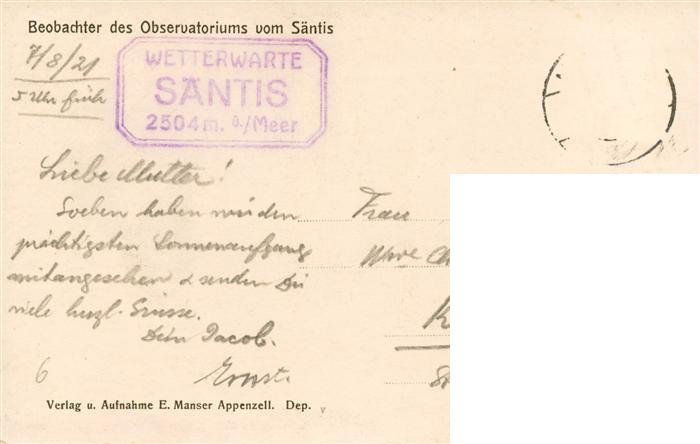 Beobachter des Observatoriums vom Säntis
7/8/21
5 Uhr früh
WETTERWARTE
SÄNTIS
2504 m. ü./Meer
Liebe Mutter!
Soeben haben wir den
prächtigsten Sonnenaufgang
mitangesehen & senden Dir
viele herzl. Grüsse.
Dein Jacob.
Ernst.
Frau
Wwe
6
Verlag u. Aufnahme E. Manser Appenzell. Dep.